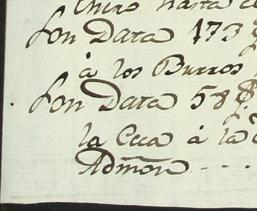 Enero hasta
Son Data 173
á los Burros
Son Data 58
la Ceca á la
Admon